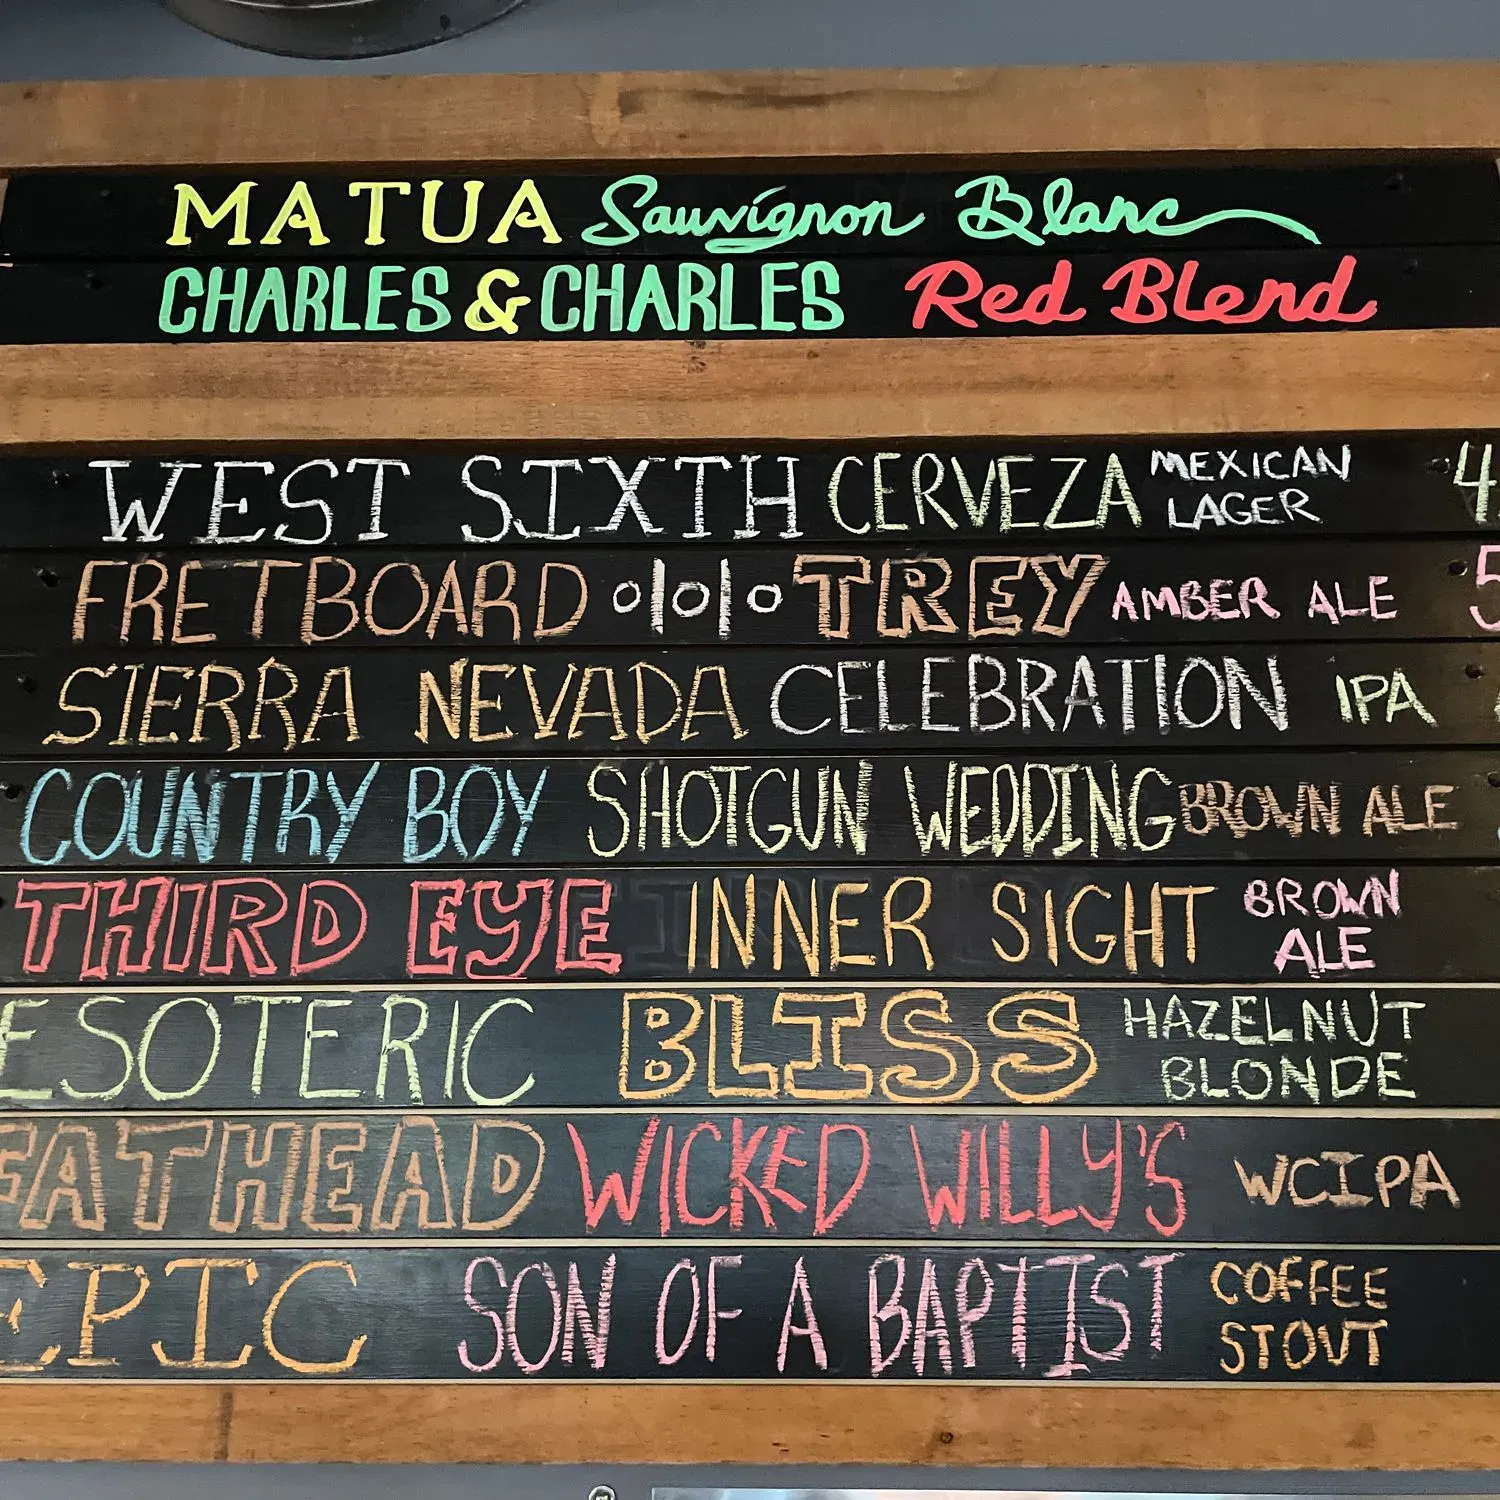 MATUA Sauvignon Blanc
CHARLES & CHARLES Red Blend
WEST SIXTH CERVEZA MEXICAN LAGER 4
FRETBOARD TREY AMBER ALE 5
SIERRA NEVADA CELEBRATION IPA
COUNTRY BOY SHOTGUN WEDDING BROWN ALE
THIRD EYE INNER SIGHT BROWN ALE
ESOTERIC BLISS HAZELNUT BLONDE
FATHEAD WICKED WILLY'S WCIPA
EPIC SON OF A BAPTIST COFFEE STOUT